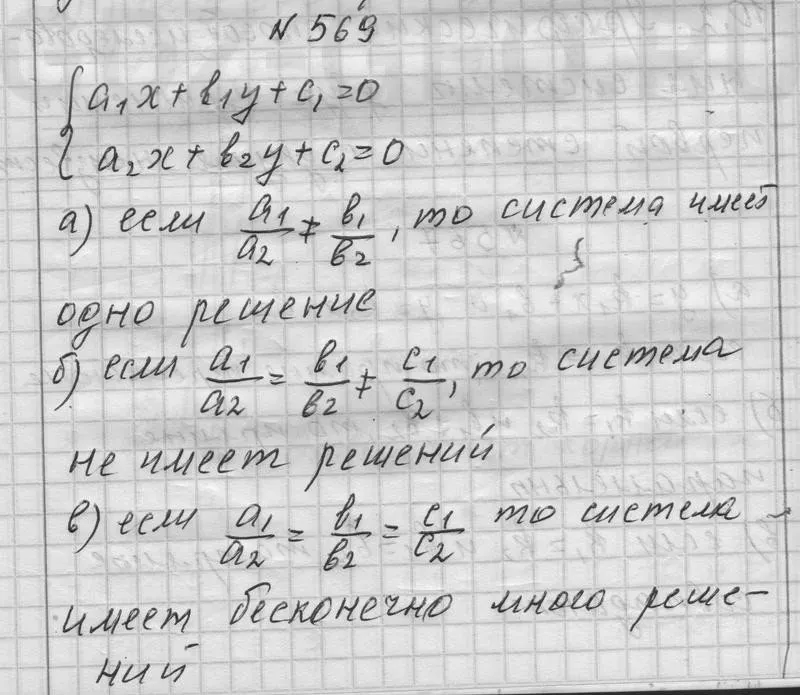 № 569
{ a₁x + b₁y + c₁ = 0
a₂x + b₂y + c₂ = 0
а) если a₁/a₂ ≠ b₁/b₂, то система имеет
одно решение
б) если a₁/a₂ = b₁/b₂ ≠ c₁/c₂, то система
не имеет решений
в) если a₁/a₂ = b₁/b₂ = c₁/c₂ то система
имеет бесконечно много реше-
ний